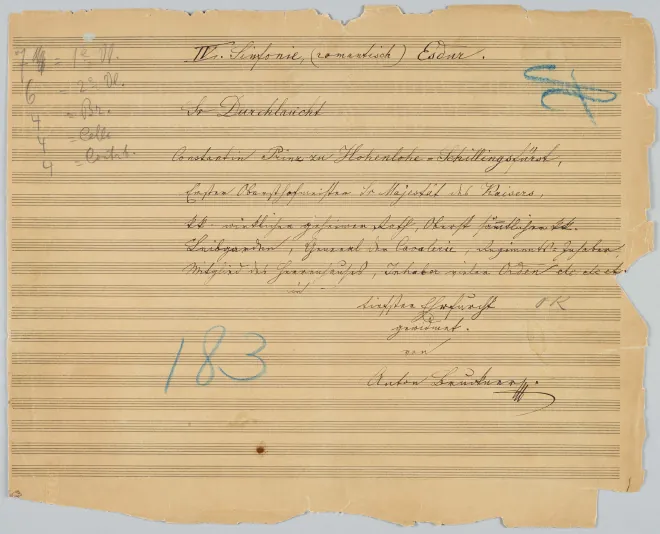 IV. Sinfonie, (romantisch) Esdur.
7 = 1te Vl.
6 = 2te Vl.
4 = Br.
4 = Celli
4 = Contrab.
Sr Durchlaucht
Constantin Prinz zu Hohenlohe-Schillingsfürst,
Ersten Obersthofmeister Sr Majestät des Kaisers,
kk. wirklichen geheimen Rath, Oberst sämtlicher kk.
Leibgarden, General der Cavalerie, Regiments-Inhaber,
Mitglied des Herrenhauses, Inhaber vieler Orden etc. etc. etc.
in
tiefster Ehrfurcht
gewidmet.
von
Anton Bruckner.
183